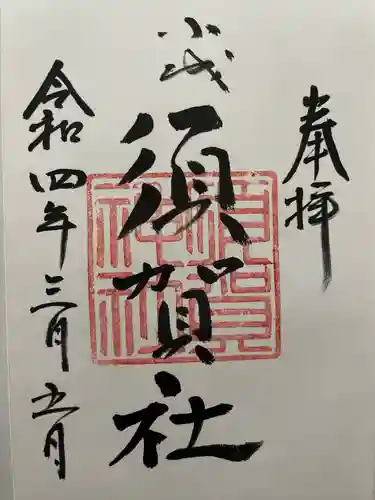 奉拝
小成
須賀社
令和四年三月五日
須賀
神社